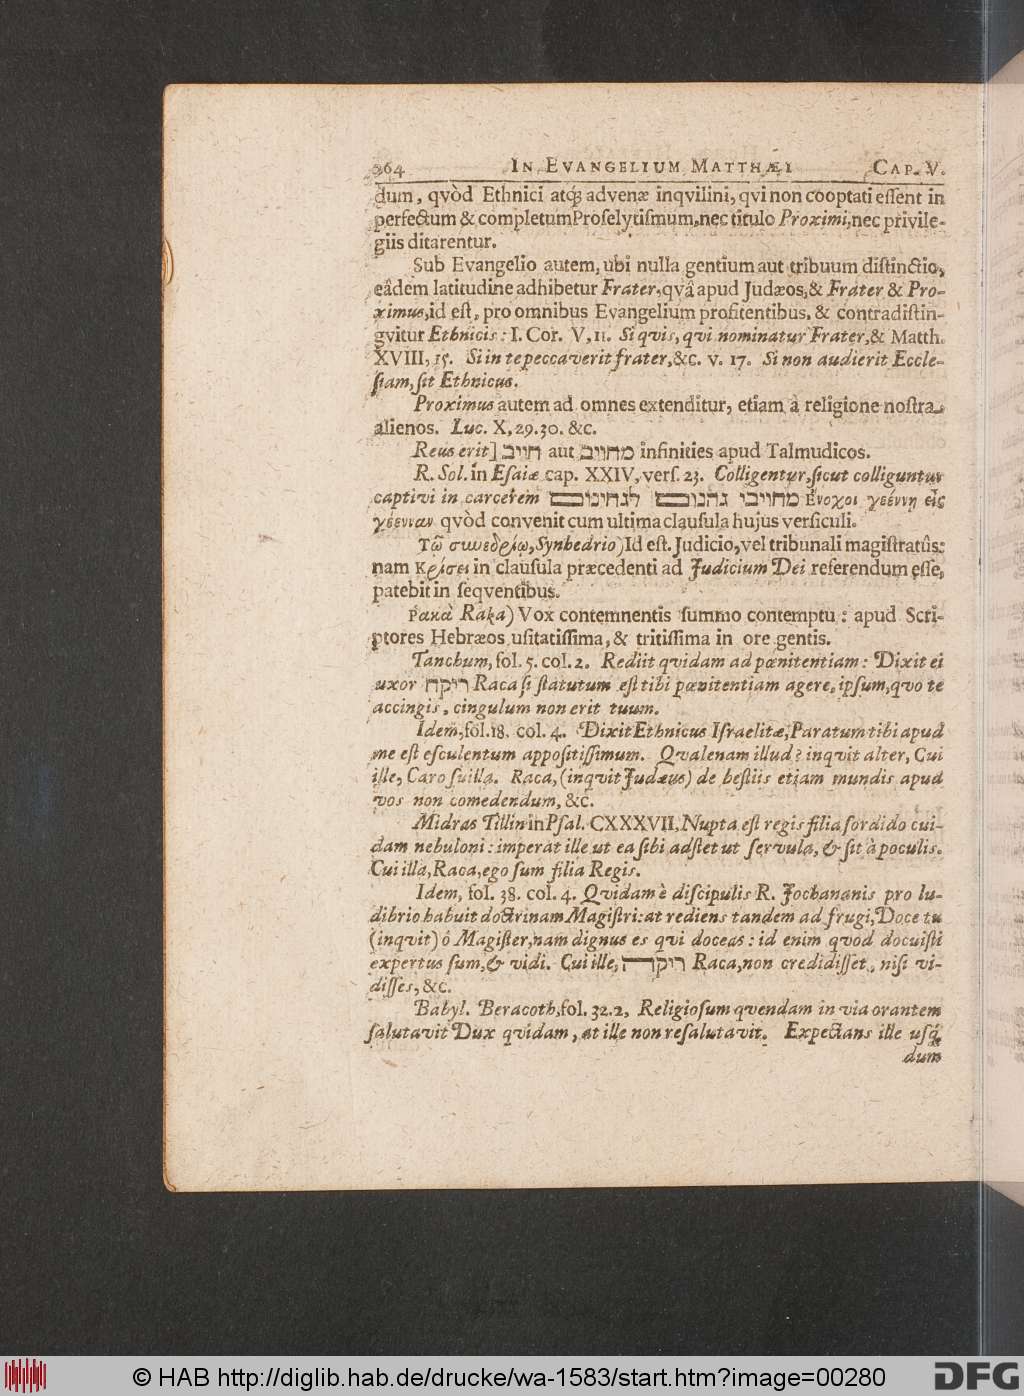 264 IN EVANGELIUM MATTHÆI CAP. V.
dum, qvòd Ethnici atq; advenæ inqvilini, qvi non cooptati eſſent in
perfectum & completum Proſelytiſmum, nec titulo Proximi, nec privile-
giis ditarentur.
Sub Evangelio autem, ubi nulla gentium aut tribuum diſtinctio,
eâdem latitudine adhibetur Frater, qvâ apud Judæos, & Frater & Pro-
ximus, id eſt, pro omnibus Evangelium profitentibus, & contradiſtin-
gvitur Ethnicis: I. Cor. V, 11. Si qvis, qvi nominatur Frater, & Matth.
XVIII, 15. Si in te peccaverit frater, &c. v. 17. Si non audierit Eccle-
ſiam, ſit Ethnicus.
Proximus autem ad omnes extenditur, etiam à religione noſtra
alienos. Luc. X, 29. 30. &c.
Reus erit] חייב aut מחוייב infinities apud Talmudicos.
R. Sol. in Eſaiæ cap. XXIV, verſ. 23. Colligentur, ſicut colliguntur
captivi in carcerem מחוייבי גהנום לגהינום Ένοχοι γεέννη εἰς
γέενναν qvòd convenit cum ultima clauſula hujus verſiculi.
Τῶ συνεδρίῳ, Synhedrio) Id eſt. Judicio, vel tribunali magiſtratûs:
nam Κρίσει in clauſula præcedenti ad Judicium Dei referendum eſſe,
patebit in ſeqventibus.
Ρακὰ Raka) Vox contemnentis ſummo contemptu: apud Scri-
ptores Hebræos uſitatiſſima, & tritiſſima in ore gentis.
Tanchum, fol. 5. col. 2. Rediit qvidam ad pœnitentiam: Dixit ei
uxor ריקה Raca ſi ſtatutum eſt tibi pœnitentiam agere, ipſum, qvo te
accingis, cingulum non erit tuum.
Idem, fol. 18. col. 4. Dixit Ethnicus Iſraelitæ, Paratum tibi apud
me eſt eſculentum appoſitiſſimum. Qvalenam illud? inqvit alter, Cui
ille, Caro ſuilla. Raca, (inqvit Judæus) de beſtiis etiam mundis apud
vos non comedendum, &c.
Midras Tillin in Pſal. CXXXVII, Nupta eſt regis filia ſordido cui-
dam nebuloni: imperat ille ut ea ſibi adſtet ut ſervula, & ſit à poculis.
Cui illa, Raca, ego ſum filia Regis.
Idem, fol. 38. col. 4. Qvidam è diſcipulis R. Jochananis pro lu-
dibrio habuit doctrinam Magiſtri: at rediens tandem ad frugi, Doce tu
(inqvit) ô Magiſter, nam dignus es qvi doceas: id enim qvod docuiſti
expertus ſum, & vidi. Cui ille, ריקה Raca, non credidiſſet, niſi vi-
diſſes, &c.
Babyl. Beracoth, fol. 32. 2, Religioſum qvendam in via orantem
ſalutavit Dux qvidam, at ille non reſalutavit. Expectans ille uſq;
dum
© HAB http://diglib.hab.de/drucke/wa-1583/start.htm?image=00280
DFG